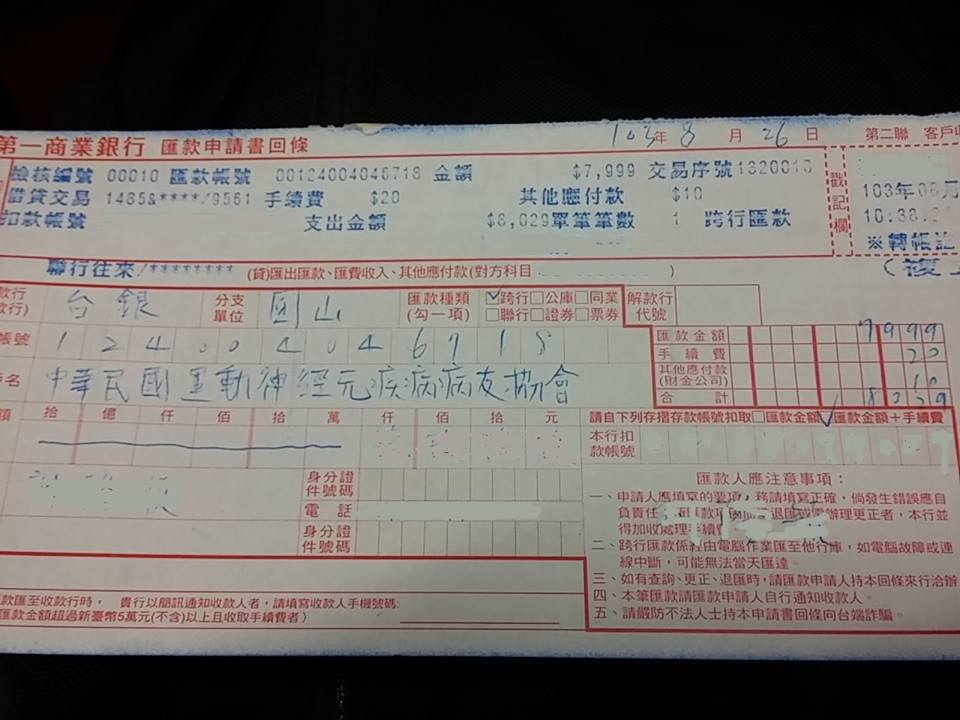 103年 8 月 26 日 第二聯 客戶收
第一商業銀行 匯款申請書回條
檢核編號 00010 匯款帳號 00124004046718 金額 $7,999 交易序號 1320013
借貸交易 1485&****/9561 手續費 $20 其他應付款 $10
扣款帳號 支出金額 $8,029 單筆筆數 1 跨行匯款
戳記欄
103年08月
10:38
※轉帳記
聯行往來/******** (貸)匯出匯款、匯費收入、其他應付款(對方科目 )
台銀 分支單位 圓山 匯款種類(勾一項) ☑跨行□公庫□同業 □聯行□證券□票券 解款行代號
帳號 124004046718
戶名 中華民國運動神經元疾病病友協會
匯款金額 7999
手續費 20
其他應付款(財金公司) 10
合計 8029
拾 億 仟 佰 拾 萬 仟 佰 拾 元
請自下列存摺存款帳號扣取□匯款金額☑匯款金額+手續費
本行扣款帳號
身分證件號碼
電話
身分證件號碼
匯款人應注意事項:
一、申請人應填寫的要項,務請填寫正確,倘發生錯誤應自
負責任 退匯或 辦理更正者,本行並
得加收處理手續費
二、跨行匯款係經由電腦作業匯至他行庫,如電腦故障或連
線中斷,可能無法當天匯達。
三、如有查詢、更正、退匯時,請匯款申請人持本回條來行洽辦
四、本筆匯款請匯款申請人自行通知收款人。
五、請嚴防不法人士持本申請書回條向台端詐騙。
款匯至收款行時, 貴行以簡訊通知收款人者,請填寫收款人手機號碼:
匯款金額超過新臺幣5萬元(不含)以上且收取手續費者)